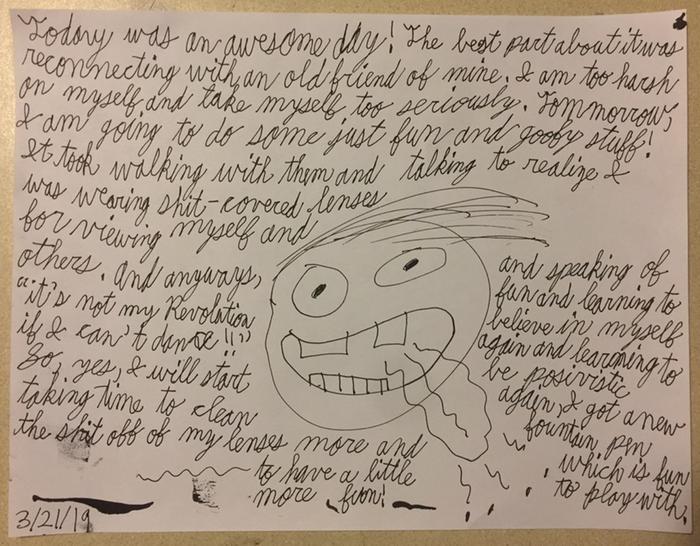 Today was an awesome day! The best part about it was
reconnecting with an old friend of mine. I am too harsh
on myself and take myself too seriously. Tommorrow,
I am going to do some just fun and goofy stuff!
It took walking with them and talking to realize I
was wearing shit-covered lenses
for viewing myself and
others. And anyways,
"it's not my Revolution
if I can't dance!!"
So, yes, I will start
taking time to clean
the shit off of my lenses more and
to have a little
more fun!
and speaking of
fun and learning to
believe in myself
again and learning to
be posivistic
again, I got a new
fountain pen
which is fun
to play with.
3/21/19